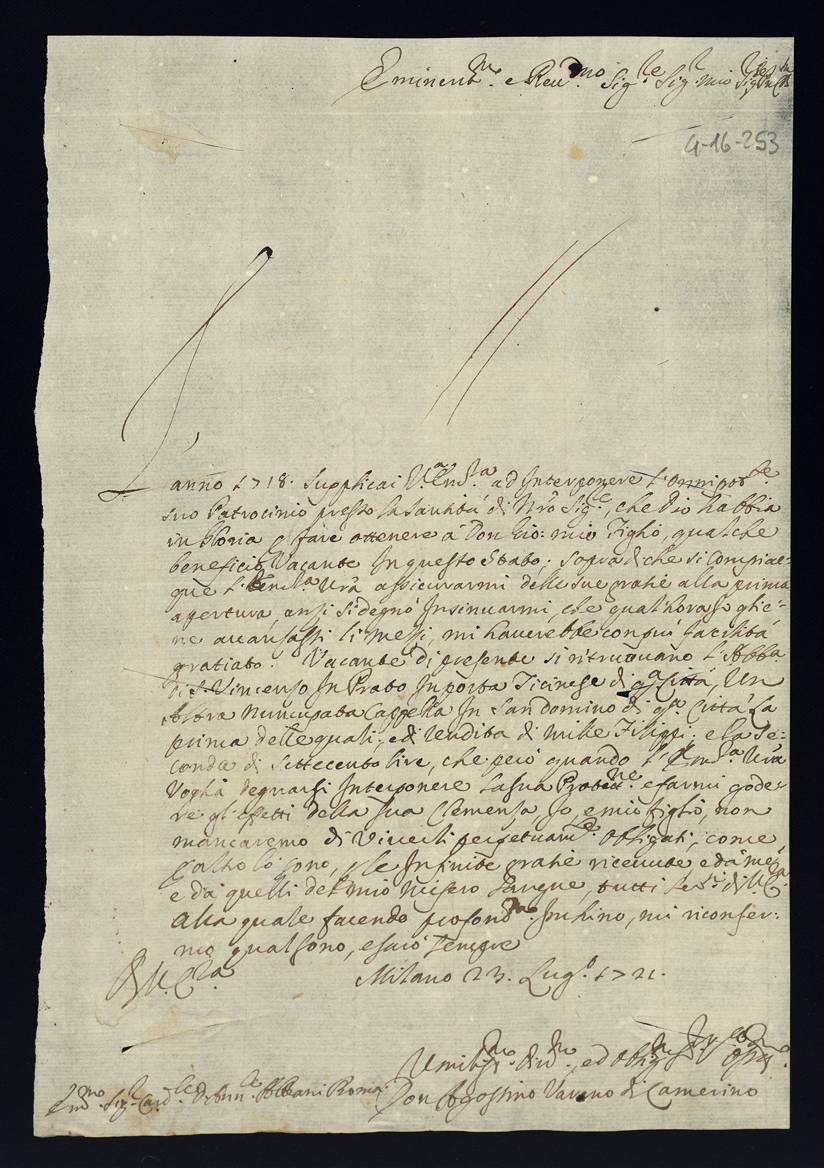 Eminent.mo e Reu.mo Sig.re Sig.r mio
4-16-253
L'anno 1718. Supplicai V.a Em.za ad Interponere l'omnipot.te
suo Patrocinio presso la Santità di N'ro Sig.re, che Dio habbia
in Gloria p fare ottenere à Don Gio: mio Figlio, qualche
beneficio Vacante In questo Stato; sopra di che si Compiac=
que l'Em.za V'ra assicurarmi delle sue gratie alla prima
apertura, anzi si degnò Insinuarmi, che qual'hora Io glie=
ne auanzassi li messi, mi hauerebbe con più facilità
gratiato. Vacante di presente si ritrouano l'Abba.
di S. Vincenzo In Prato In porta Ticinese di q.a Città, Un
Altra nuncupata Cappella In San Domino di q.a Città La
prima delle quali, è di rendita di mille Filippi, e la Se=
conda di Settecento lire, che però quando l'Em.za V'ra
Voglia degnarsi Interponere la sua Protett.ne e farmi gode=
re gl'effetti della sua Clemenza, Io, e mio figlio, non
mancaremo di Viuerli perpetuam.te obligati, come
l'altro lo sono, p le Infinite gratie riceuute e da me,
e da quelli del mio misero Sangue, tutti Se.ri di V. E.
alla quale facendo profond.mo Inchino, mi riconfer=
mo qual sono, e sarò sempre
D V. E.za Milano 23. Lug.o 1721.
Umiliss.mo Diu.mo, ed oblig.mo
Em.mo Sig.r Card.le Albani Roma.
Don Agostino Varano di Camerino